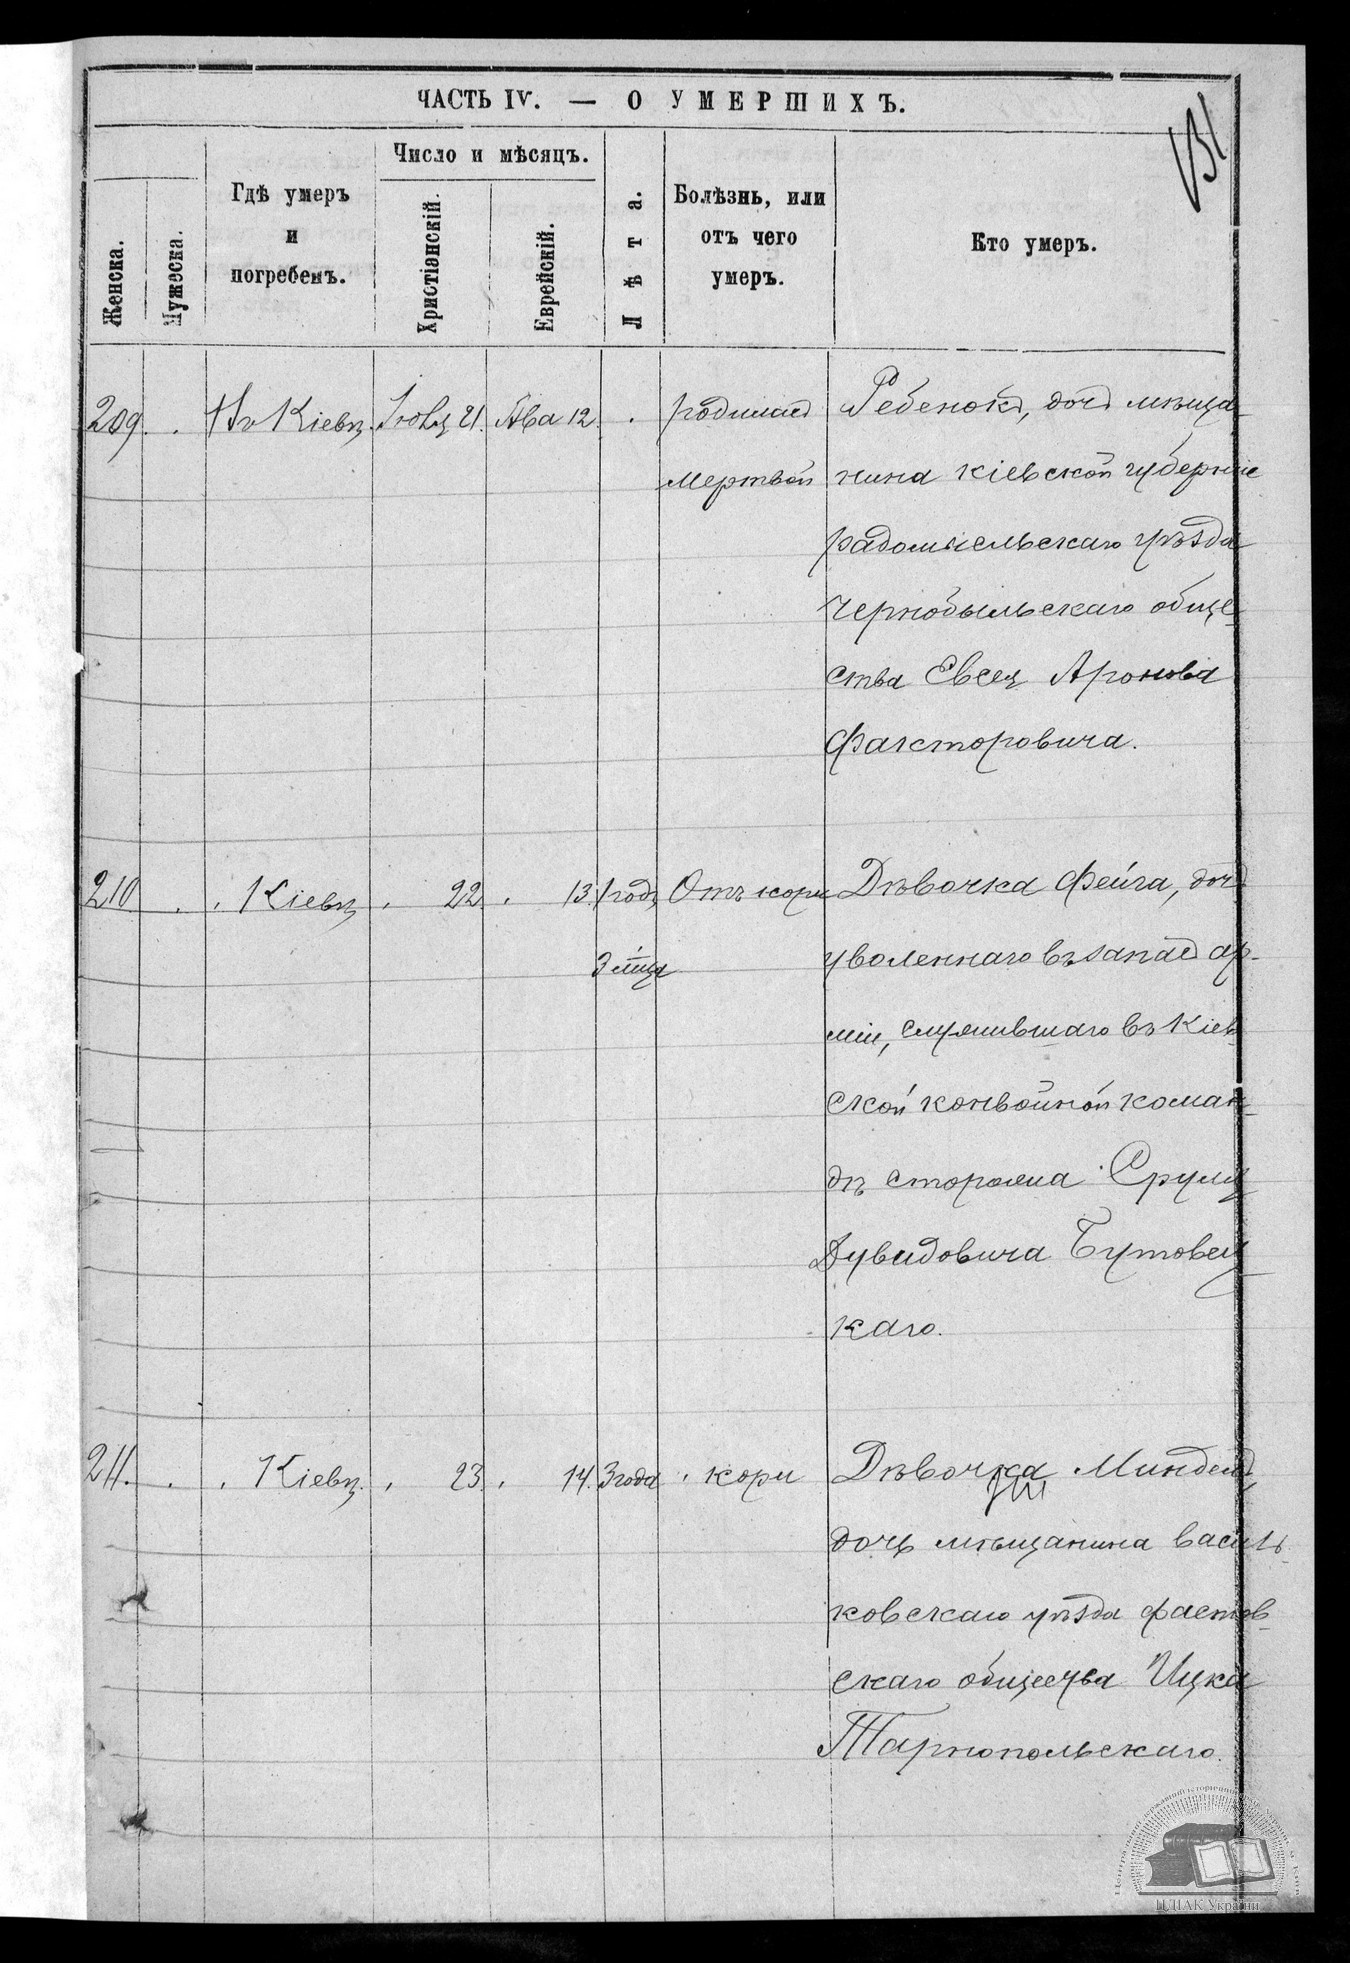 ЧАСТЬ IV. — О УМЕРШИХЪ.
131
Женска.
Мужеска.
Гдѣ умеръ
и
погребенъ.
Число и мѣсяцъ.
Христіанскій.
Еврейскій.
Лѣта.
Болѣзнь, или
отъ чего
умеръ.
Кто умеръ.
209. . Въ Кіевѣ. Іюля 21. Ава 12. . родилась Ребенокъ, дочь мѣща-
мертвой нина кіевской губерніи
радомысльскаго уѣзда
чернобыльскаго обще-
ства Евсея Аронова
Факторовича.
210 . . Кіевѣ . 22. . 13. 1 годъ Отъ кори Дѣвочка Фейга, дочь
3 мѣц. уволеннаго въ запасъ ар-
міи, служившаго въ Кіев-
ской конвойной коман-
дѣ сторожа Сруля
Дувидовича Бутовец
каго.
211. . . Кіевѣ. . 23. . 14. 3 года . кори Дѣвочка Миндель
дочь мѣщанина василь-
ковскаго уѣзда фастов-
скаго общества Ицка
Тарнопольскаго.
ЦДІАК України